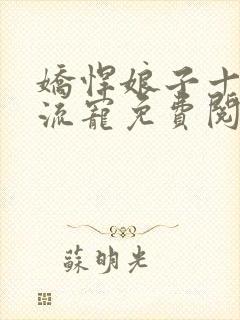 嬌悍娘子十
流寵免費閱
蘇明光